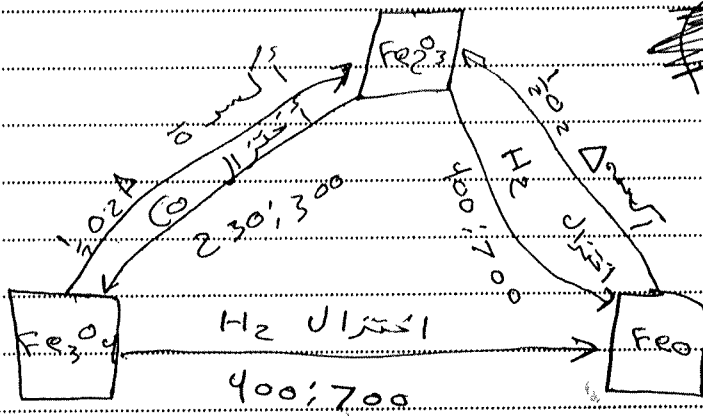 Fe2O3
أكسدة
1/2 O2 Δ
اختزال
CO
230 : 300
1/2 O2
Δ أكسدة
H2
اختزال
400 : 700
Fe3O4
اختزال H2
400 : 700
FeO